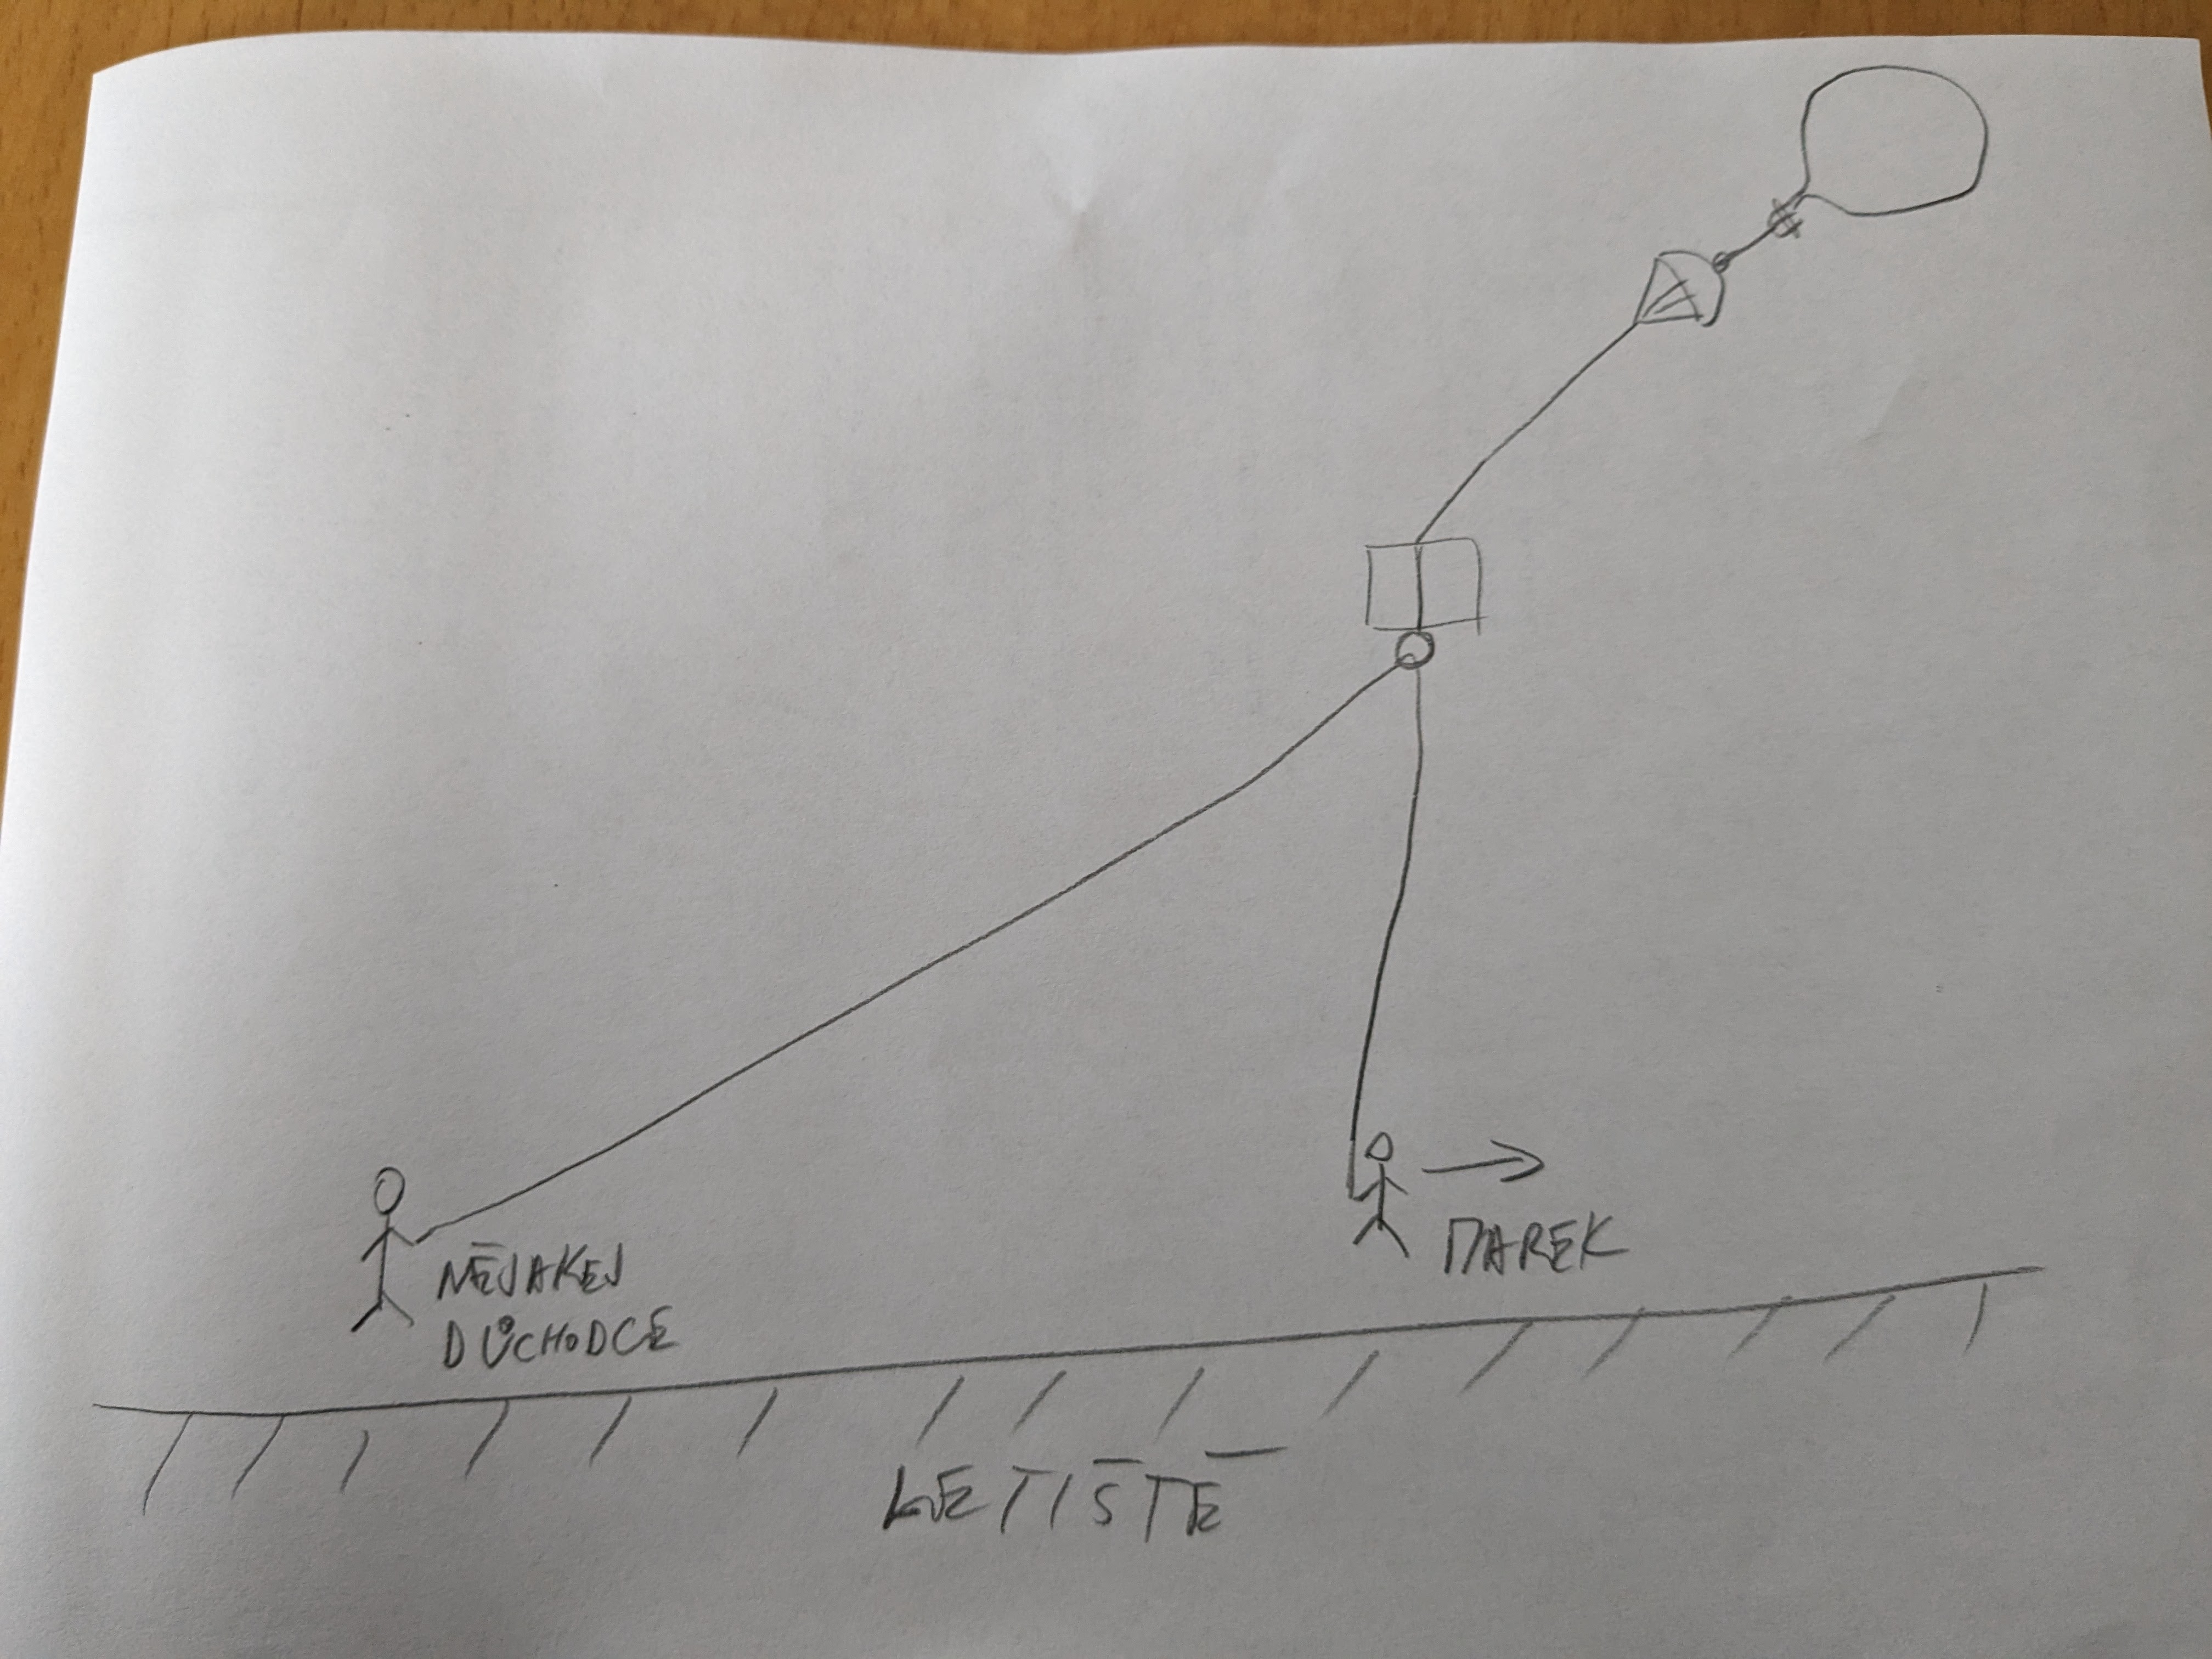 NĚJAKEJ
DŮCHODCE
MAREK
LETIŠTĚ